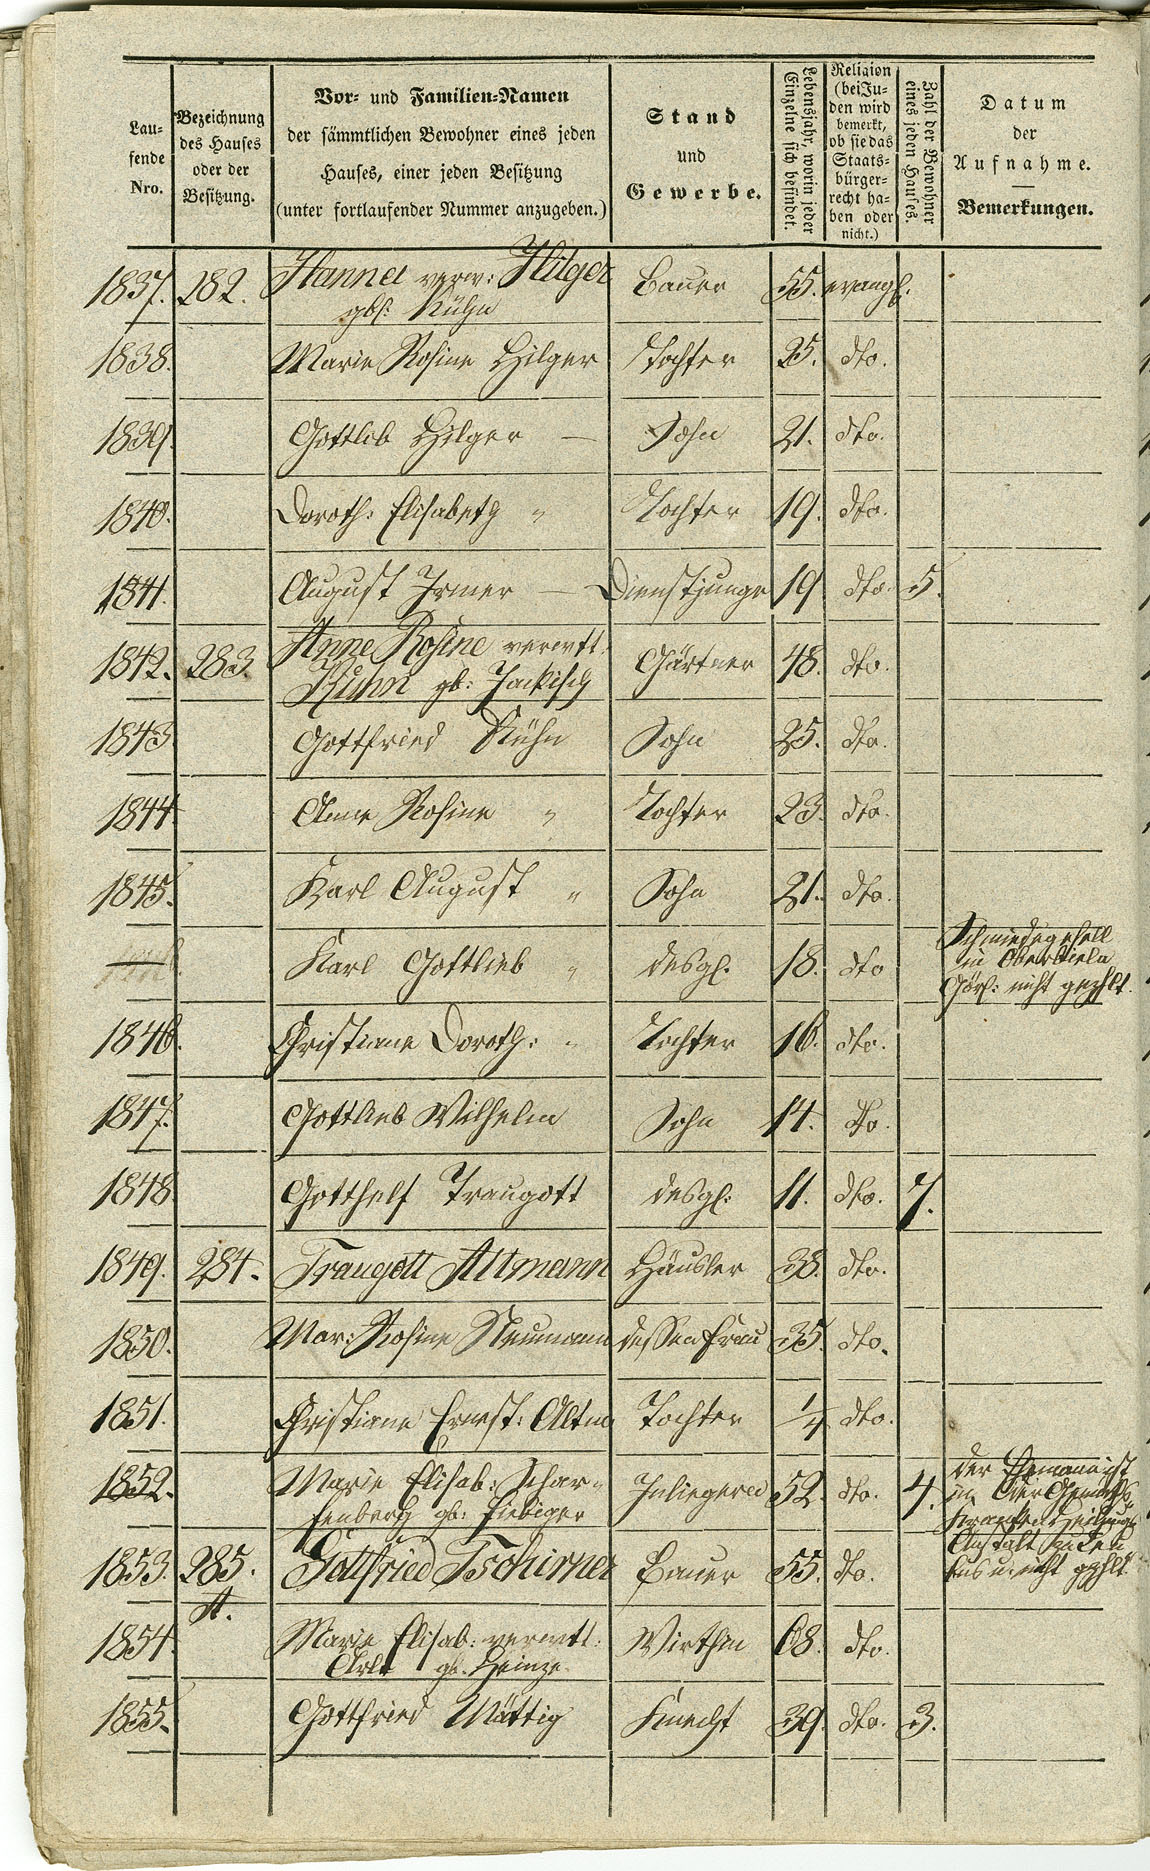 Lau-
fende
Nro.
Bezeichnung
des Hauses
oder der
Besitzung.
Vor- und Familien-Namen
der sämmtlichen Bewohner eines jeden
Hauses, einer jeden Besitzung
(unter fortlaufender Nummer anzugeben.)
Stand
und
Gewerbe.
Lebensjahr, worin jeder
Einzelne sich befindet.
Religion
(bei Ju-
den wird
bemerkt,
ob sie das
Staats-
bürger-
recht ha-
ben oder
nicht.)
Zahl der Bewohner
eines jeden Hauses.
Datum
der
Aufnahme.
Bemerkungen.
1837. 282. Hanna verw: Hilger Bauer 55. evangl.
gbf: Kühn
1838. Marie Rosine Hilger Tochter 25. dto.
1839. Gottlieb Hilger — Sohn 21. dto.
1840. Doroth: Elisabeth " Tochter 19. dto.
1841. August Irmer — Dienstjunge 19 dto. 5.
1842. 283. Anne Rosine verwtt: Gärtner 48. dto.
Kühn gb: Jackisch
1843 Gottfried Kühn Sohn 25. dto.
1844 Anne Rosine " Tochter 23. dto.
1845. Karl August " Sohn 21. dto.
Karl Gottlieb " desgl. 18. dto
Schmiedegesell
in Oberbiela
Görl: nicht gezhlt.
1846. Christiane Doroth: " Tochter 16. dto.
1847. Gottlieb Wilhelm Sohn 14. dto.
1848 Gotthelf Traugott desgl: 11. dto. 7.
1849. 284. Traugott Altmann Häusler 38. dto.
1850. Mar: Rosine Neumann dessen Frau 35. dto.
1851. Christiane Ernest: Altm Tochter 1/4 dto.
1852. Marie Elisab: Schar- Inliegerin 52. dto. 4.
fenberg gb: Fiebiger
der Ehemann ist
in der
Anstalt zu Leu
bus u. nicht gzhlt.
1853. 285. Gottfried Tschirner Bauer 55. dto.
A.
1854. Marie Elisab: verwtt: Wirthin 68. dto.
Arlt gb. Heinze
1855. Gottfried Mättig Knecht 39. dto. 3.